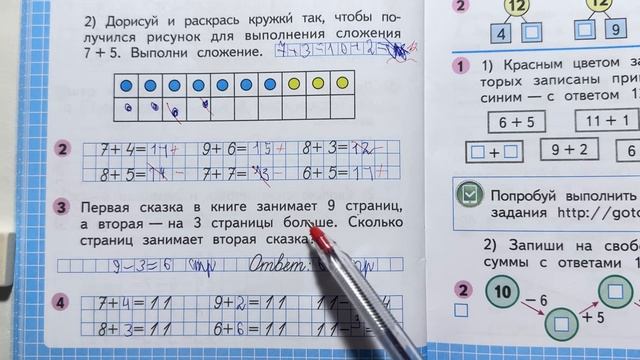 2) Дорисуй и раскрась кружки так, чтобы по-
лучился рисунок для выполнения сложения
7 + 5. Выполни сложение. 7-3=10+2=
2 7+4=11+ 9+6=15+ 8+3=12-
8+5=14- 7+7=13- 6+5=11+
3 Первая сказка в книге занимает 9 страниц,
а вторая — на 3 страницы больше. Сколько
страниц занимает вторая сказка?
9-3=6 стр Ответ:
4 7+4=11 9+2=11 11-
8+3=11 6+6=11 11-
2 12 12
4 9
1 1) Красным цветом за
торых записаны при
синим — с ответом 1
6 + 5 11 + 1
+ 9 + 2
Попробуй выполнить
задания http://goto
2) Запиши на свобо
суммы с ответами 1
2 10 - 6 + 5